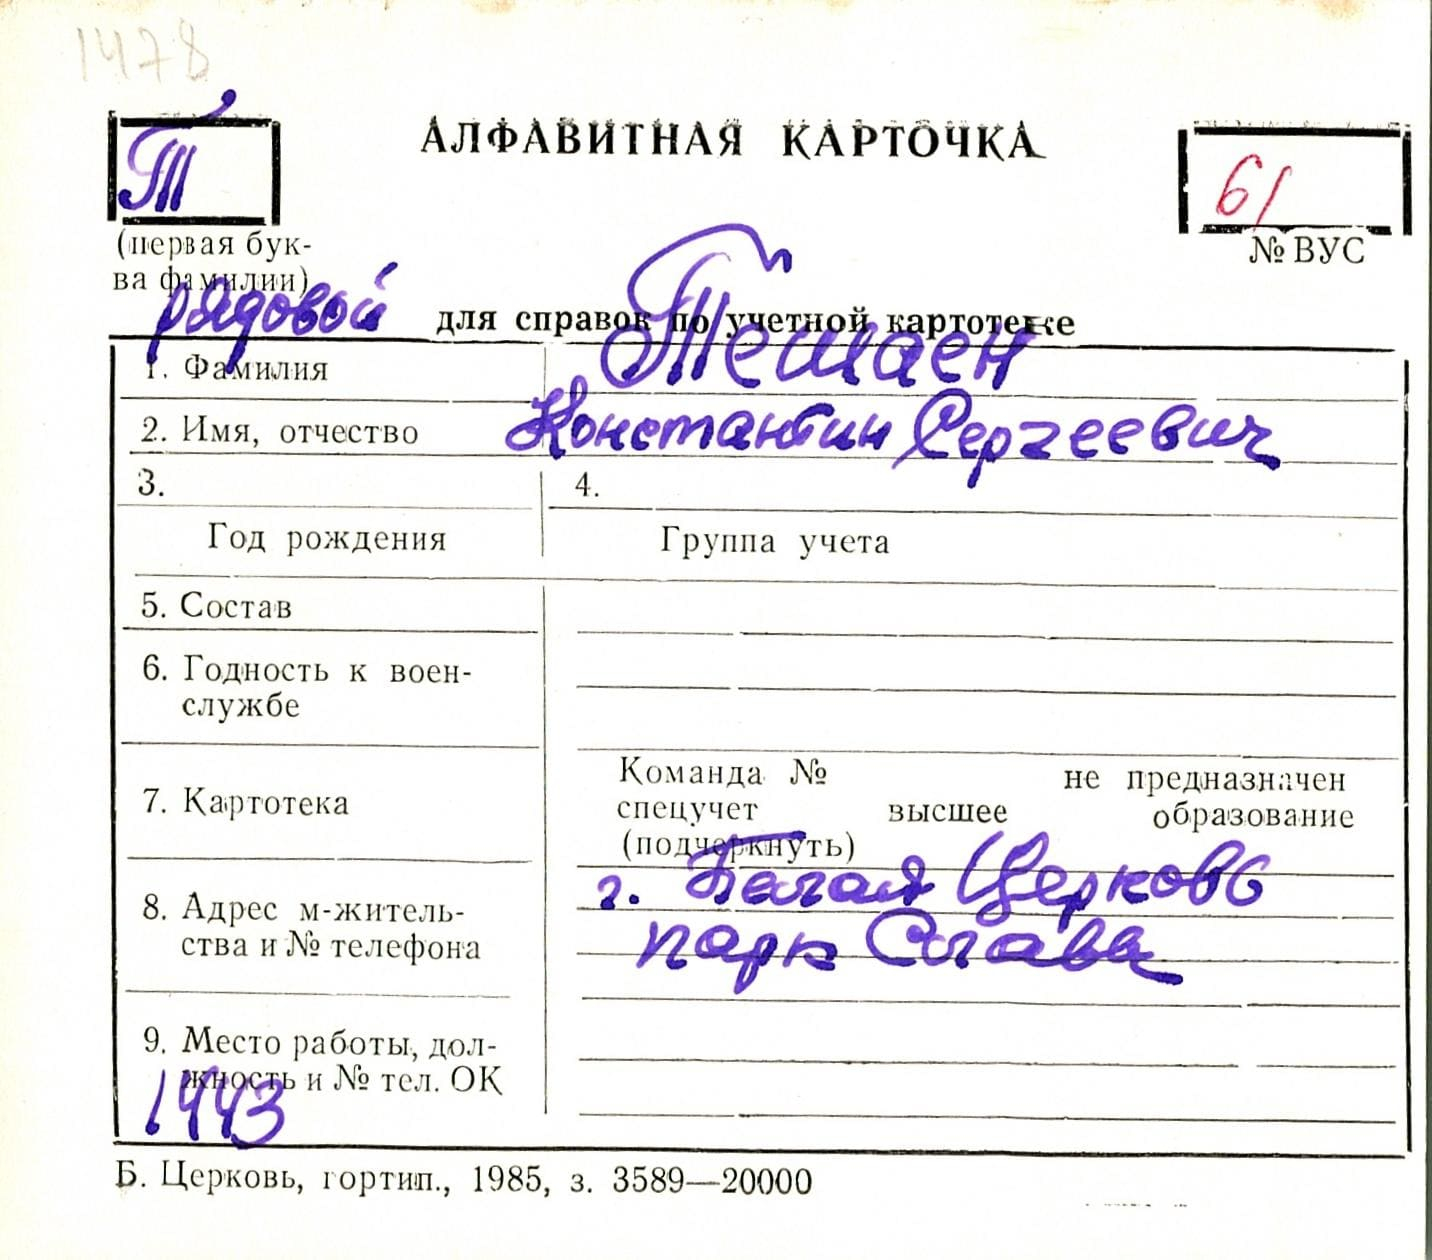 1478
Т
АЛФАВИТНАЯ КАРТОЧКА
61
(первая бук-
ва фамилии)
№ ВУС
рядовой
для справок по учетной картотеке
1. Фамилия
Тешаен
2. Имя, отчество
Константин Сергеевич
3.
4.
Год рождения
Группа учета
5. Состав
6. Годность к воен-
службе
7. Картотека
Команда № не предназначен
спецучет высшее образование
(подчеркнуть)
8. Адрес м-житель-
ства и № телефона
г. Белая Церковь
парк Слава
9. Место работы, дол-
жность и № тел. ОК
1443
Б. Церковь, гортип., 1985, з. 3589—20000